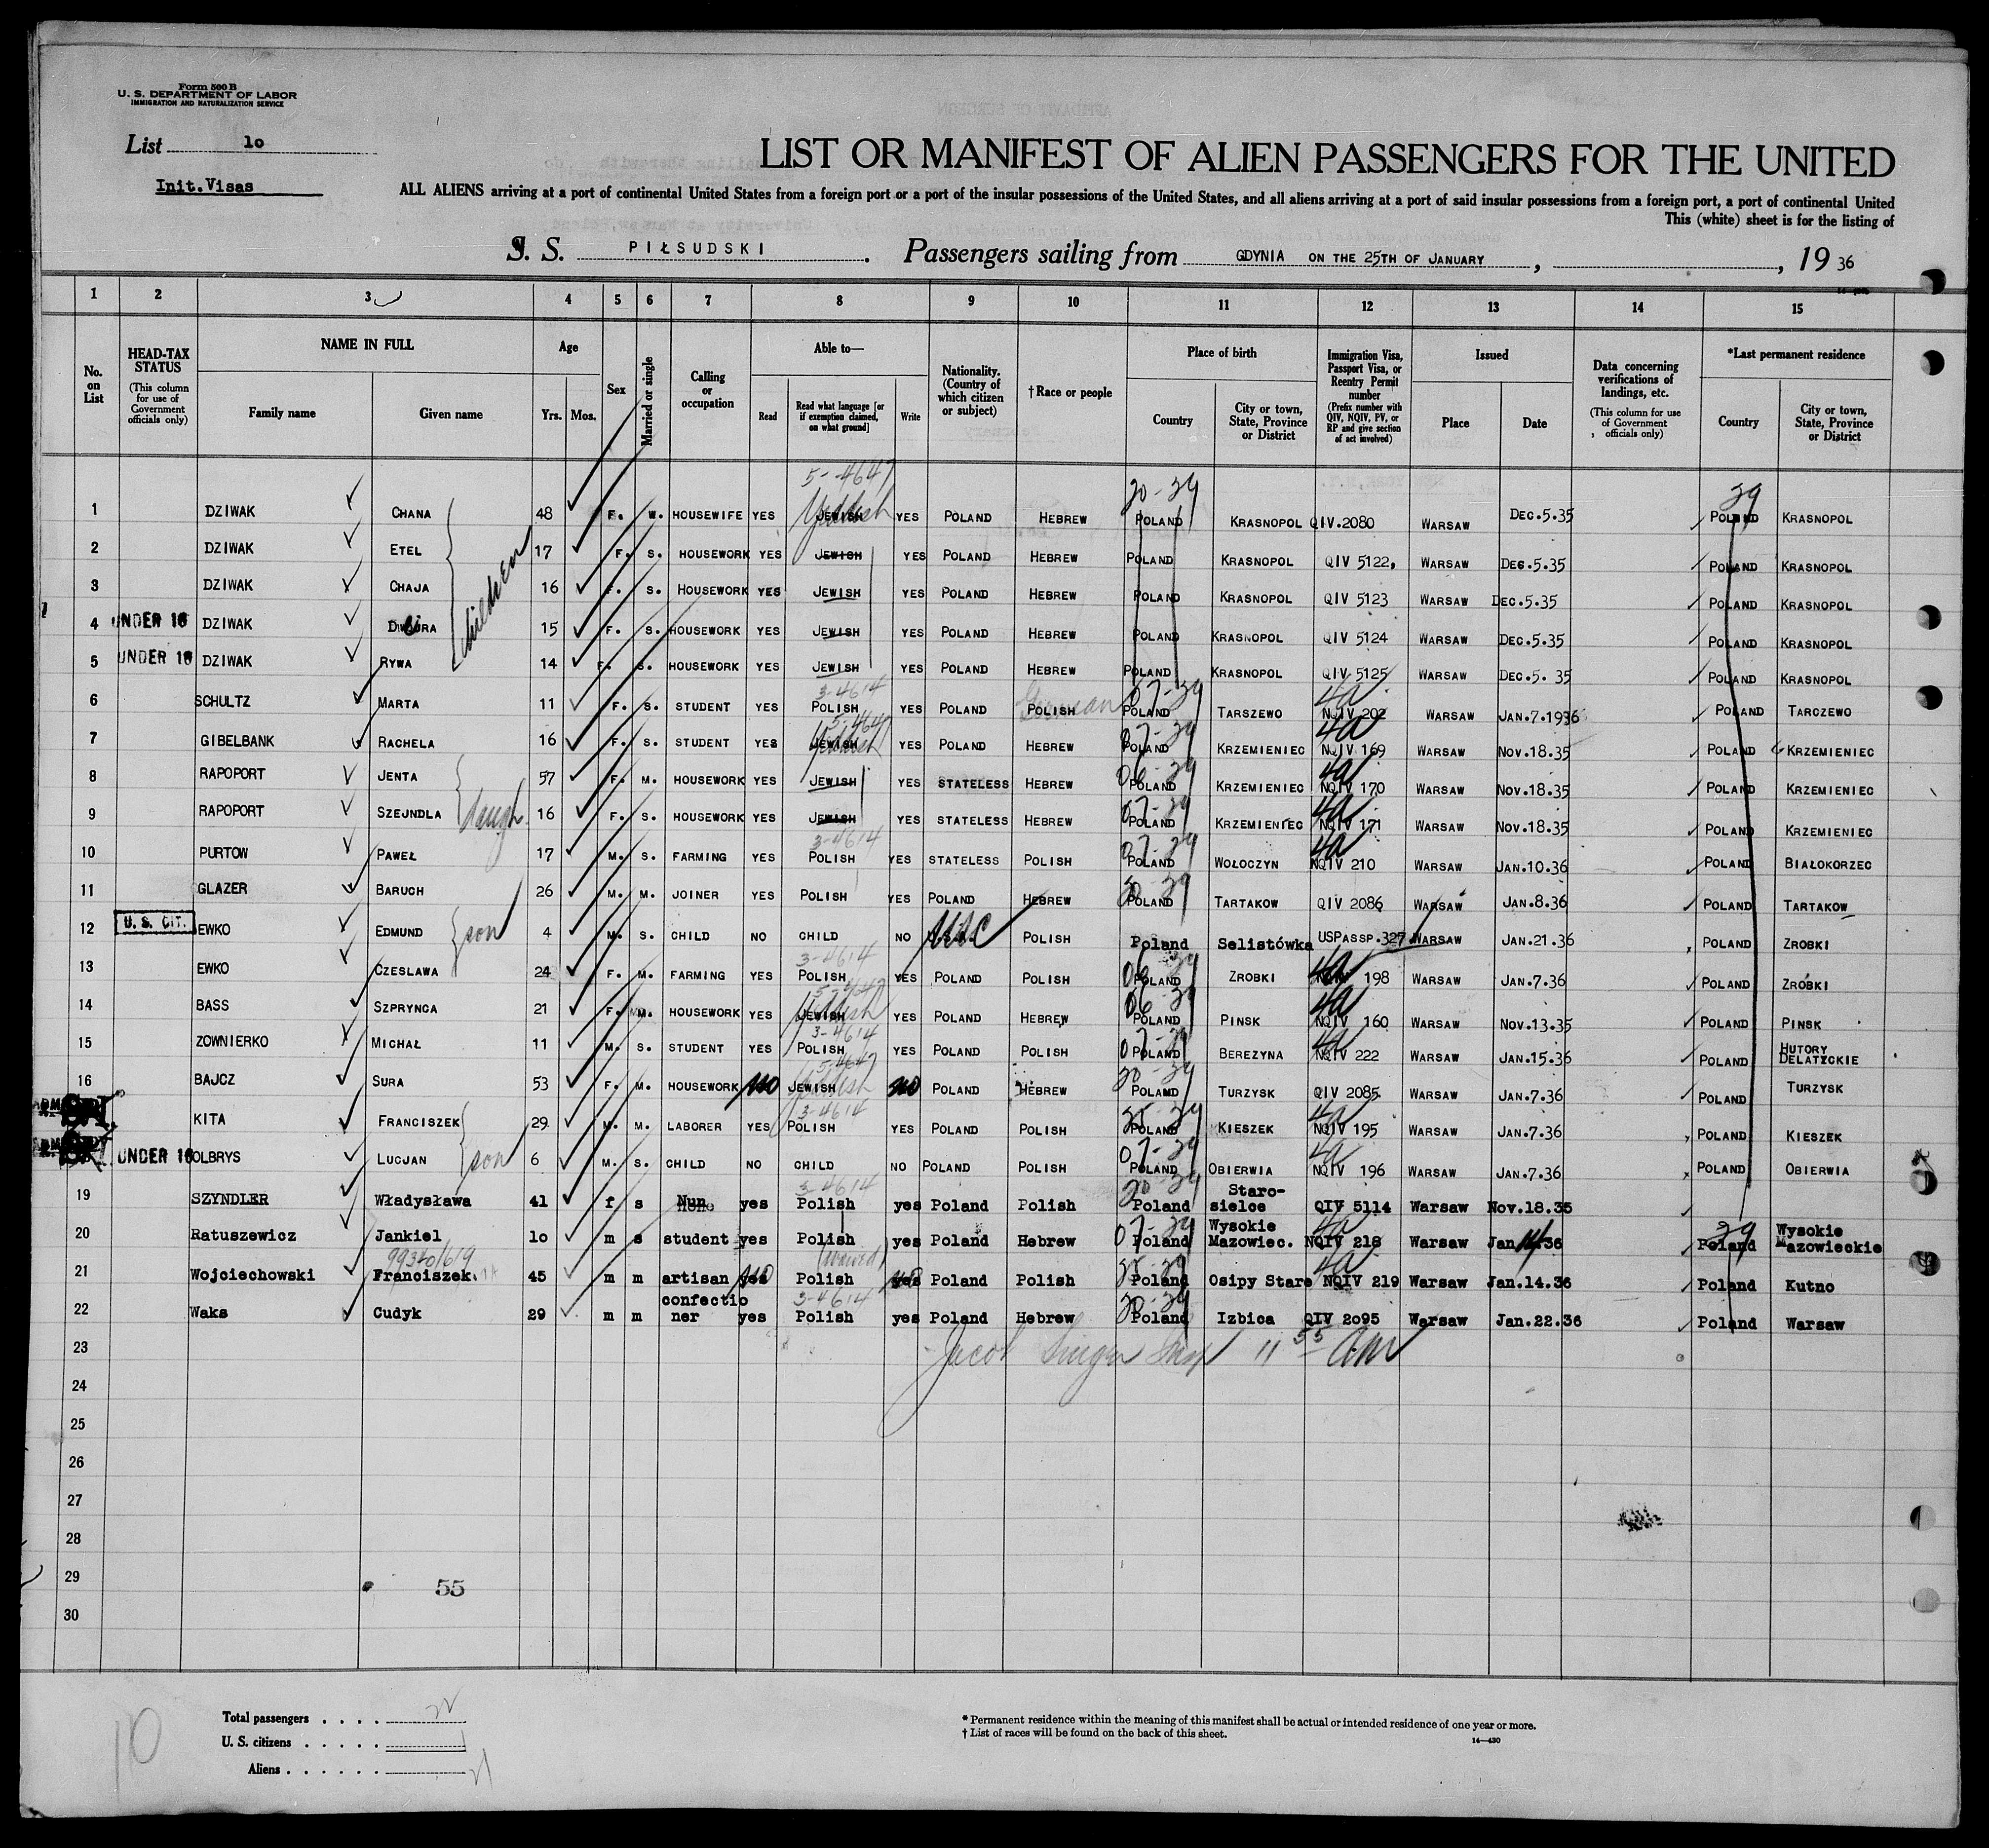 Form 500 B
U. S. DEPARTMENT OF LABOR
IMMIGRATION AND NATURALIZATION SERVICE
List 10
Init.Visas
LIST OR MANIFEST OF ALIEN PASSENGERS FOR THE UNITED
ALL ALIENS arriving at a port of continental United States from a foreign port or a port of the insular possessions of the United States, and all aliens arriving at a port of said insular possessions from a foreign port, a port of continental United
This (white) sheet is for the listing of
S. S. PIŁSUDSKI. Passengers sailing from GDYNIA ON THE 25TH OF JANUARY, , 19 36
1 2 3 4 5 6 7 8 9 10 11 12 13 14 15
No. on List
HEAD-TAX STATUS (This column for use of Government officials only)
NAME IN FULL
Family name
Given name
Age
Yrs. Mos.
Sex
Married or single
Calling or occupation
Able to—
Read
Read what language [or if exemption claimed, on what ground]
Write
Nationality. (Country of which citizen or subject)
† Race or people
Place of birth
Country
City or town, State, Province or District
Immigration Visa, Passport Visa, or Reentry Permit number (Prefix number with QIV, NQIV, PV, or RP and give section of act involved)
Issued
Place
Date
Data concerning verifications of landings, etc. (This column for use of Government officials only)
*Last permanent residence
Country
City or town, State, Province or District
5-4647 20-39 39
1 DZIWAK CHANA 48 F. W. HOUSEWIFE YES JEWISH Yiddish YES POLAND HEBREW POLAND KRASNOPOL QIV.2080 WARSAW DEC.5.35 POLAND KRASNOPOL
2 DZIWAK ETEL 17 F. S. HOUSEWORK YES JEWISH YES POLAND HEBREW POLAND KRASNOPOL QIV 5122, WARSAW DEC.5.35 POLAND KRASNOPOL
children
3 DZIWAK CHAJA 16 F. S. HOUSEWORK YES JEWISH YES POLAND HEBREW POLAND KRASNOPOL QIV 5123 WARSAW DEC.5.35 POLAND KRASNOPOL
4 UNDER 16 DZIWAK 15 F. S. HOUSEWORK YES JEWISH YES POLAND HEBREW POLAND KRASNOPOL QIV 5124 WARSAW DEC.5.35 POLAND KRASNOPOL
5 UNDER 16 DZIWAK RYWA 14 F. S. HOUSEWORK YES JEWISH YES POLAND HEBREW POLAND KRASNOPOL QIV 5125 WARSAW DEC.5. 35 POLAND KRASNOPOL
3-4614 07-39 4a
6 SCHULTZ MARTA 11 F. S. STUDENT YES POLISH YES POLAND German POLISH POLAND TARSZEWO NQIV 202 WARSAW JAN.7.1936 POLAND TARCZEWO
5-4647 07-39 4a
7 GIBELBANK RACHELA 16 F. S. STUDENT YES JEWISH Yiddish YES POLAND HEBREW POLAND KRZEMIENIEC NQIV 169 WARSAW NOV.18.35 POLAND KRZEMIENIEC
06-39 4a
8 RAPOPORT JENTA 57 F. M. HOUSEWORK YES JEWISH YES STATELESS HEBREW POLAND KRZEMIENIEC NQIV 170 WARSAW NOV.18.35 POLAND KRZEMIENIEC
07-39 4a
9 RAPOPORT SZEJNDLA daugh. 16 F. S. HOUSEWORK YES JEWISH YES STATELESS HEBREW POLAND KRZEMIENIEC NQIV 171 WARSAW NOV.18.35 POLAND KRZEMIENIEC
3-4614 07-39 4a
10 PURTOW PAWEŁ 17 M. S. FARMING YES POLISH YES STATELESS POLISH POLAND WOŁOCZYN NQIV 210 WARSAW JAN.10.36 POLAND BIAŁOKORZEC
30-39
11 GLAZER BARUCH 26 M. M. JOINER YES POLISH YES POLAND HEBREW POLAND TARTAKOW QIV 2086 WARSAW JAN.8.36 POLAND TARTAKOW
12 U. S. CIT. EWKO EDMUND son 4 M. S. CHILD NO CHILD NO USC POLISH Poland Selistówka USPASSP.327 WARSAW JAN.21.36 POLAND ZROBKI
3-4614 06-39 4a
13 EWKO CZESLAWA 24 F. M. FARMING YES POLISH YES POLAND POLISH POLAND ZROBKI 198 WARSAW JAN.7.36 POLAND ZROBKI
5-4647 06-39 4a
14 BASS SZPRYNCA 21 F. M. HOUSEWORK YES JEWISH Yiddish YES POLAND HEBREW POLAND PINSK NQIV 160 WARSAW NOV.13.35 POLAND PINSK
3-4614 07-39 4a
15 ZOWNIERKO MICHAŁ 11 M. S. STUDENT YES POLISH YES POLAND POLISH POLAND BEREZYNA NQIV 222 WARSAW JAN.15.36 POLAND HUTORY DELATZCKIE
5-4647 30-39
16 BAJCZ SURA 53 F. M. HOUSEWORK no JEWISH Yiddish no POLAND HEBREW POLAND TURZYSK QIV 2085 WARSAW JAN.7.36 POLAND TURZYSK
3-4614 25-39 4a
KITA FRANCISZEK 29 M. M. LABORER YES POLISH YES POLAND POLISH POLAND KIESZEK NQIV 195 WARSAW JAN.7.36 POLAND KIESZEK
07-39 4a
UNDER 16 OLBRYS LUCJAN son 6 M. S. CHILD NO CHILD NO POLAND POLISH POLAND OBIERWIA NQIV 196 WARSAW JAN.7.36 POLAND OBIERWIA
3-4614 20-39
19 SZYNDLER Władysława 41 f s Nun yes Polish yes Poland Polish Poland Staro-sielce QIV 5114 Warsaw Nov.18.35
07-39 4a 39
20 Ratuszewicz Jankiel 10 m s student yes Polish yes Poland Hebrew Poland Wysokie Mazowiec. NQIV 218 Warsaw Jan.14.36 Poland Wysokie Mazowieckie
99340/619 25-39 4a
21 Wojciechowski Franciszek 45 m m artisan no Polish no Poland Polish Poland Osipy Stare NQIV 219 Warsaw Jan.14.36 Poland Kutno
3-4614 30-39
22 Waks Cudyk 29 m m confectioner yes Polish yes Poland Hebrew Poland Izbica QIV 2095 Warsaw Jan.22.36 Poland Warsaw
23 Jacob Singer Insp 11 55 am
24
25
26
27
28
29
55
30
Total passengers . . . . 22
U. S. citizens . . . . . 1
Aliens . . . . . . 21
10
* Permanent residence within the meaning of this manifest shall be actual or intended residence of one year or more.
† List of races will be found on the back of this sheet.
14—430